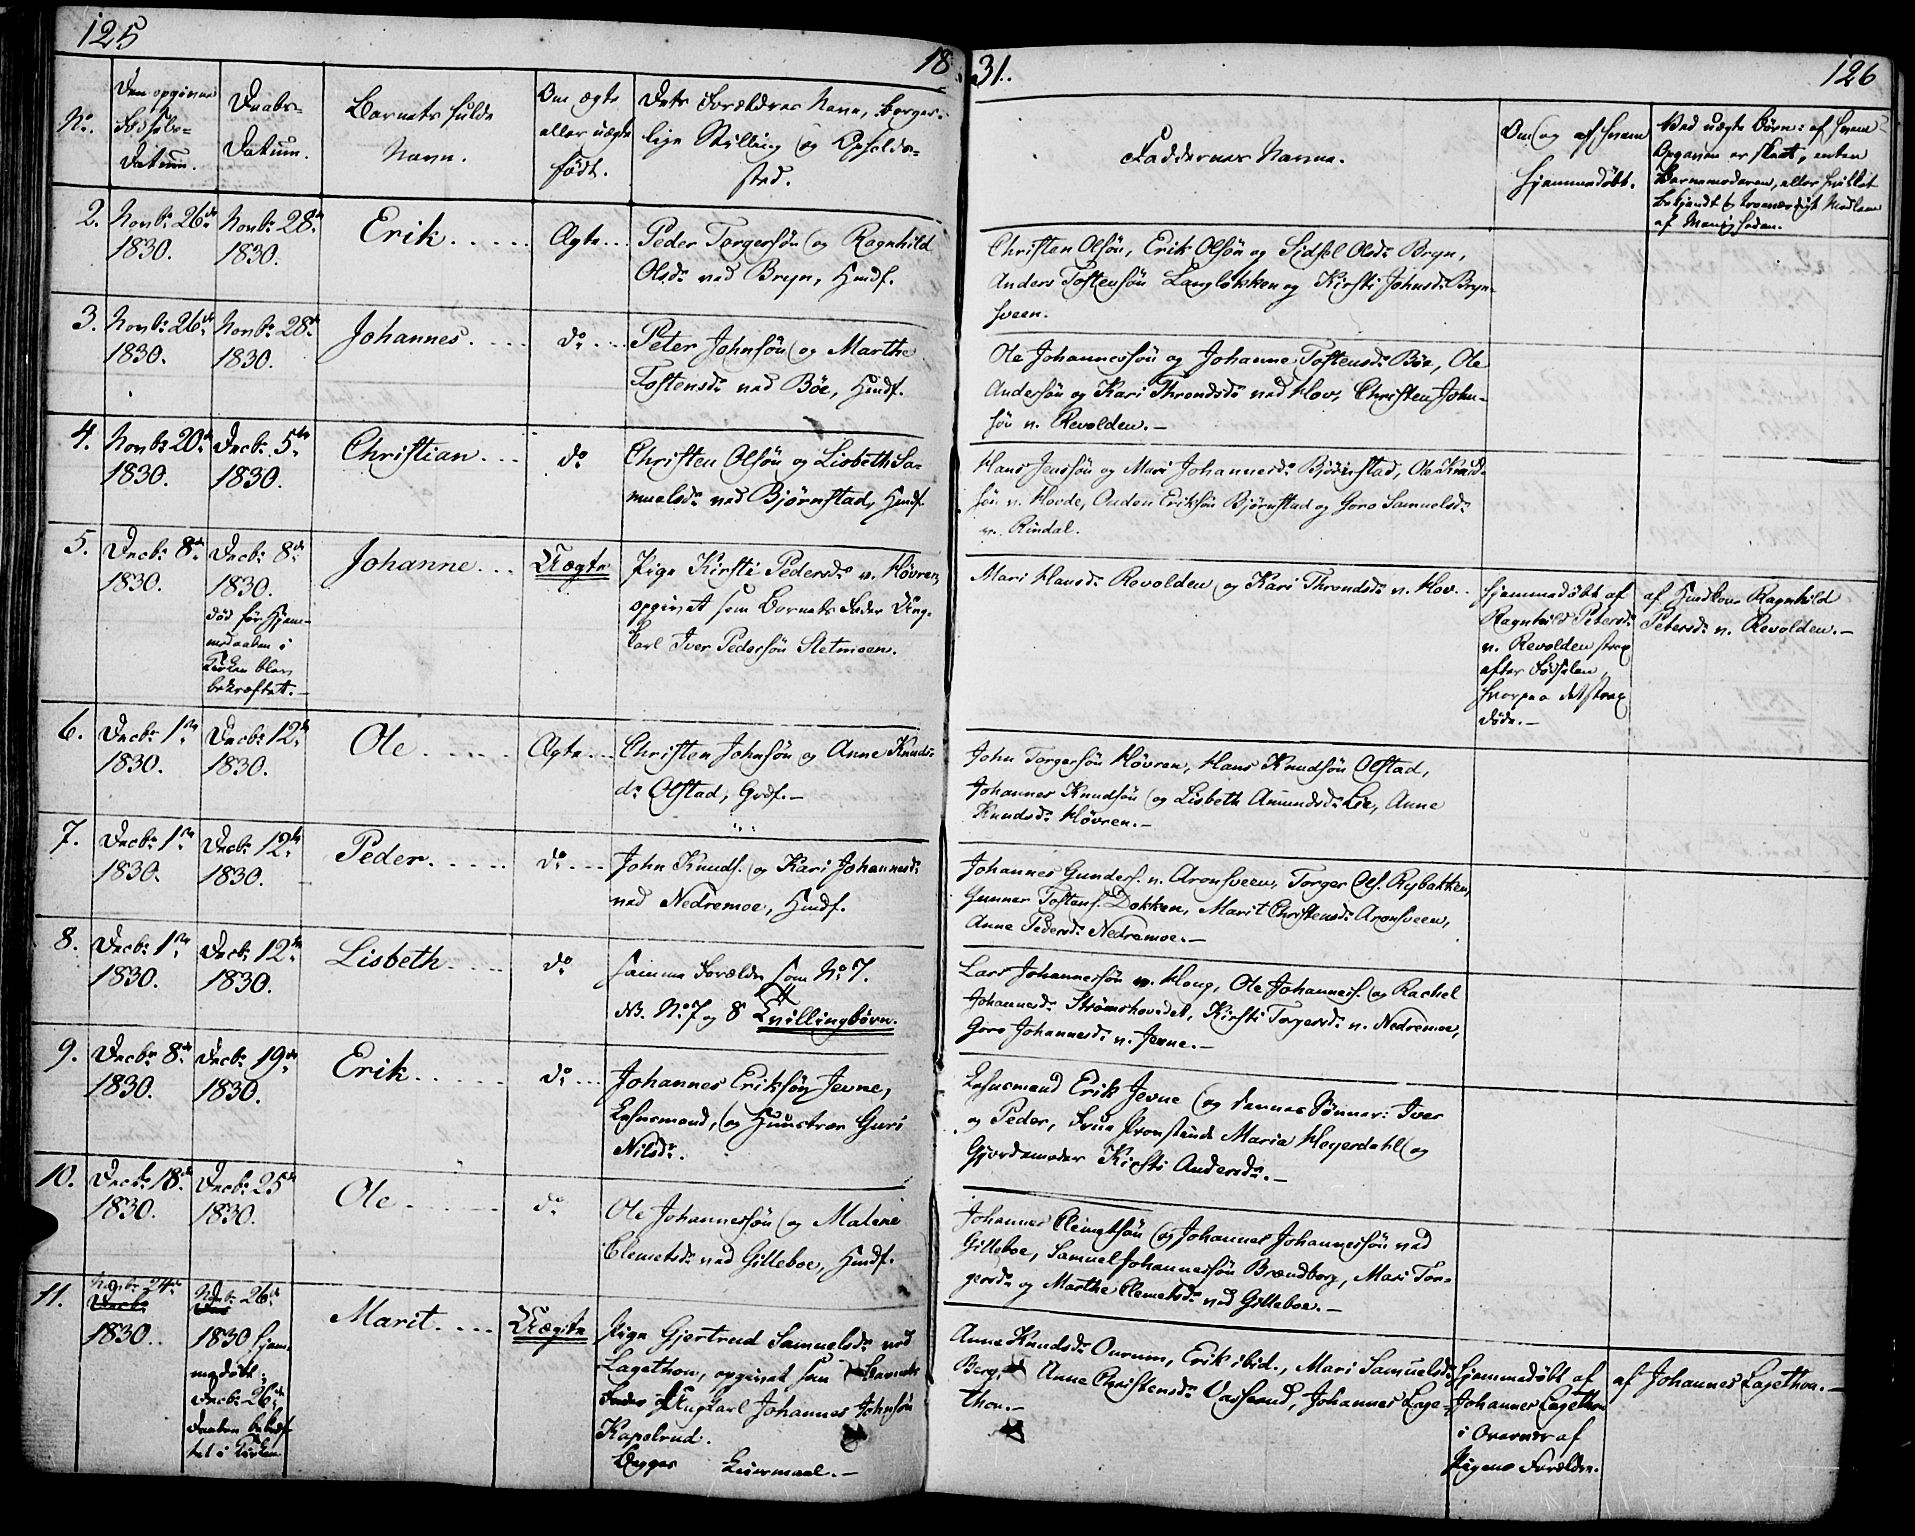 125
18
31.
126
No.
Den opgivne
Fødsels-
Datum.
Daabs-
Datum.
Barnets fulde
Navn.
Om ægte
eller uægte
født.
Dets Forældres Navne, Borger-
lige Stilling og Opholds-
sted.
Faddernes Navne.
Om og af hvem
hjemmedøbt.
Ved uægte Børn: af hvem
Opgaven er skeet, enten
Barnemoderen, eller hvilket
bekjendt og troværdigt Medlem
af Menigheden.
2.
Novbr. 26de
1830.
Novbr. 28de
1830.
Erik.
Ægte
Peder Torgersøn og Ragnhild
Olsdr. ved Bryn, Husf.
Christen Olsøn, Erik Olsøn og Sidsel Olsdr. Bryn,
Anders Tostensøn Langløkken og Kirsti Johnsdr. Bryn-
sveen.
3.
Novbr. 26de
1830.
Novbr. 28de
1830.
Johannes.
do.
Peter Johnsøn og Marthe
Tostensdr. ved Bøe, Husf.
Ole Johannessøn og Johanne Tostensdr. Bøe, Ole
Andersøn og Kari Throndsdr. ved Hov, Christen John-
søn v. Revolden.-
4.
Novbr. 20de
1830.
Decbr. 5te
1830.
Christian.
do
Christen Olsøn og Lisbeth Sa-
muelsdr. ved Bjørnstad, Husf.
Hans Jenssøn og Mari Johannesdr. Bjørnstad, Ole Knud-
søn v. Hovde, Auden Eriksøn Bjørnstad og Goro Samuelsdr.
v. Rindal.
5.
Decbr. 8de
1830.
Decbr. 8de
1830.
død før Hjem-
medaaben i
Kirken blev
bekræftet.-
Johanne.
Uægte
Pige Kirsti Pedersdr. v. Høvren,
opgivet som Barnets Fader Ung-
karl Iver Pedersøn Sletmoen.
Mari Hansdr. Revolden og Kari Throndsdr. v. Hov.
hjemmedøbt af
Ragnhild Petersdr.
v. Revolden strax
efter Fødselen,
hvorpaa det strax
døde.-
af Huuskone Ragnhild
Petersdr. v. Revolden.-
6.
Decbr. 1ste
1830.
Decbr. 12te
1830.
Ole
Ægte
Christen Johnsøn og Anne Knuds-
dr. Olstad, Grdf.-
John Torgersøn Høvren, Hans Knudsøn Olstad,
Johannes Knudsøn og Lisbeth Amundsdr. Lie, Anne
Knudsdr. Høvren.-
7.
Decbr. 1ste
1830.
Decbr. 12te
1830.
Peder.
do.
John Knuds. og Kari Johannesdr.
ved Nedremoe, Husf.
Johannes Gunders. v. Aronsveen, Torger Ols. Rybakken,
Gunner Tostens. Dokken, Marit Christensdr. Aronsveen,
Anne Pedersdr. Nedremoe.-
8.
Decbr. 1ste
1830.
Decbr. 12te
1830.
Lisbeth
do
Samme Forældre som No. 7.
NB. No. 7 og 8 Tvillingbørn.
Lars Johannessøn v. Houg, Ole Johanness. og Rachel
Johannesdr. Strømshovedet, Kirsti Torgersdr. v. Nedremoe,
Goro Johannesdr. v. Jevne.-
9.
Decbr. 8de
1830.
Decbr. 19de
1830.
Erik
do.
Johannes Eriksøn Jevne,
Lehnsmand, og Huustroe Guri
Nilsdr.
Lehnsmand Erik Jevne og dennes Sønner: Iver
og Peder, Frue Provstinde Maria Heyerdahl og
Gjordemoder Kirsti Andersdr.-
10.
Decbr. 18de
1830.
Decbr. 25de
1830.
Ole
do
Ole Johannessøn og Malene
Clemetsdr. ved Gilleboe, Husf.
Johannes Clemetsøn og Johannes Johannessøn ved
Gilleboe, Samuel Johannessøn Brændborg, Mari Tor-
gersdr. og Marthe Clemetsdr. ved Gilleboe.-
11.
Novbr. 24de
Decbr.
1830.
Novbr. 26de
1830 hjem-
medøbt;
Decbr. 26de
Daaben bekræf-
tet i Kirken
Marit.
Uægte
Pige Gjertrud Samuelsdr. ved
Lagethon, opgivet som Barnets
Fader Ungkarl Johannes Johnsøn
Kapelrud.
Begges Leiermaal.-
Anne Knudsdr. Onrum, Erik ibid., Mari Samuelsdr.
Berg, Anne Christensdr. Vasserud, Johannes Lage-
thon.-
Hjemmedøbt af
Johannes Lagethon
i Overvær af
Pigens Forældre.
af Johannes Lagethon.-